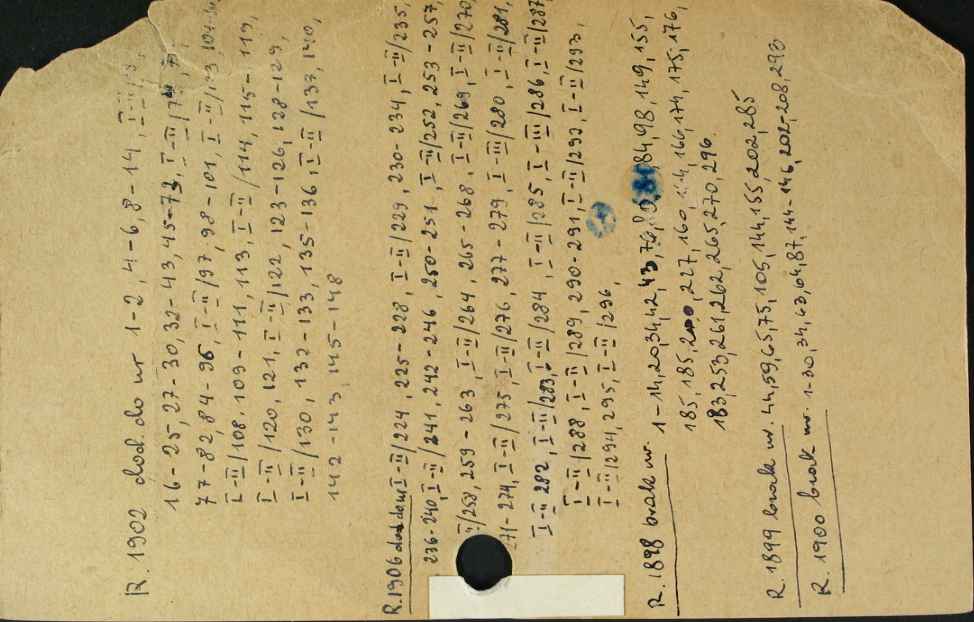 R. 1902 dod. do nr 1-2, 4-6, 8-14, I-II/
16-25, 27-30, 32-43, 45-73, I-II/74,
77-82, 84-96, I-II/97, 98-101, I-II/103
I-II/108, 109-111, 113, I-II/114, 115-119,
I-II/120, 121, I-II/122, 123-126, 128-129,
I-II/130, 132-133, 135-136, I-II/137, 140,
142-143, 145-148
R. 1906 I-II/224, 225-228, I-II/229, 230-234, I-II/235,
236-240, I-II/241, 242-246, 250-251, I-II/252, 253-257,
II/258, 259-263, I-II/264, 265-268, I-II/269, I-II/270,
271-274, I-II/275, I-II/276, 277-279, I-III/280, I-II/281,
I-II 282, I-II/283, I-II/284, I-II/285, I-III/286, I-II/287
I-II/288, I-II/289, 290-291, I-II/292, I-II/293,
I-II/294, 295, I-II/296,
R. 1898 brak nr. 1-14, 20, 34, 42, 43, 84, 98, 149, 155,
185, 185, 227, 160, 166, 174, 175, 176,
183, 253, 261, 262, 265, 270, 296
R. 1899 brak nr. 44, 59, 65, 75, 105, 144, 155, 202, 285
R. 1900 brak nr. 1-30, 34, 43, 64, 87, 144-146, 202-208, 293